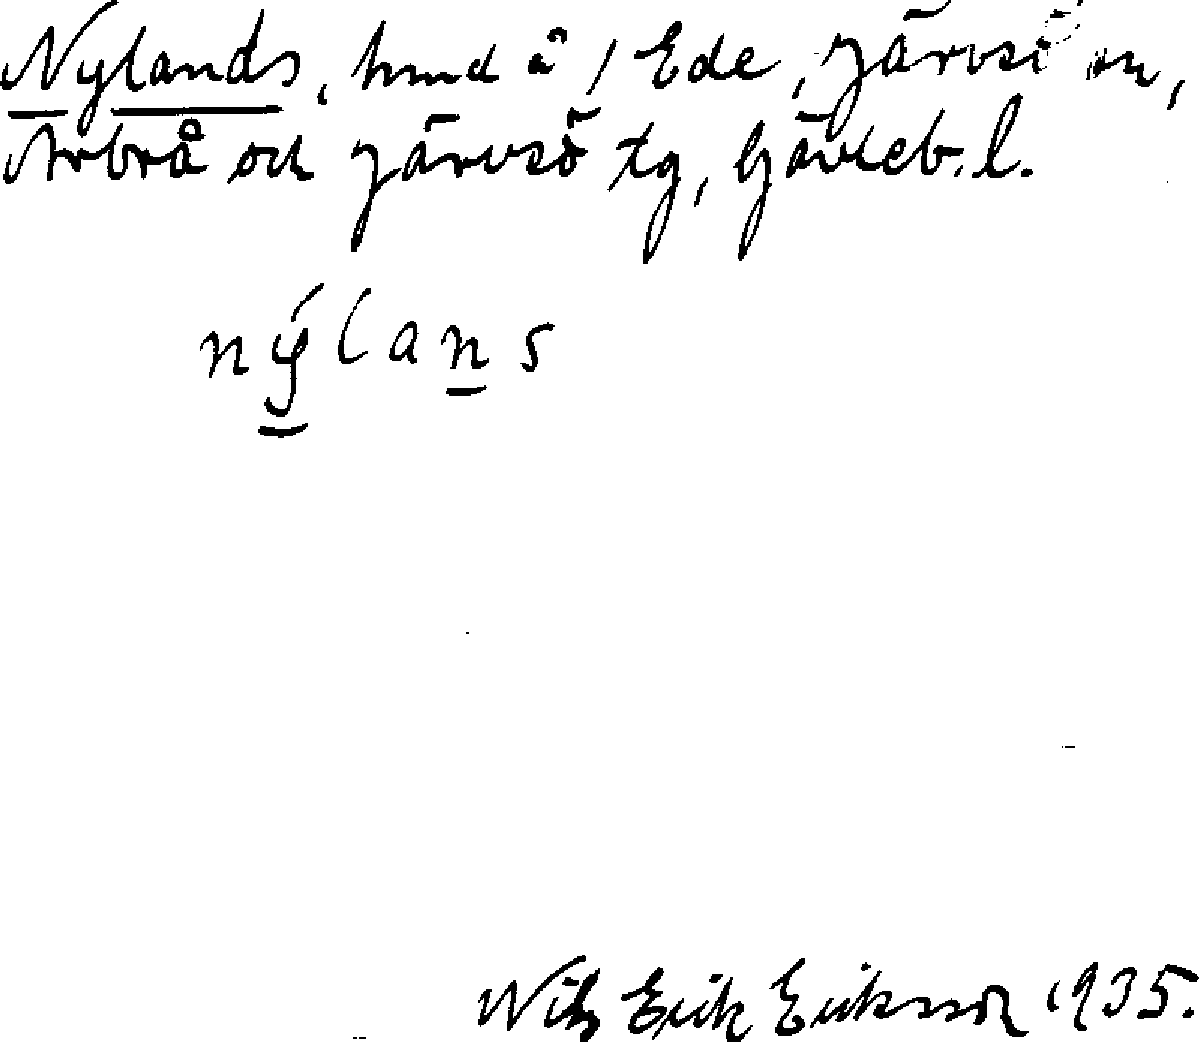 Nylands, hmd å / Ede, Järvsö sn,
Arbrå och Järvsö tg, Gävleb. l.
nýlans
Nils Erik Eriksson 1935.